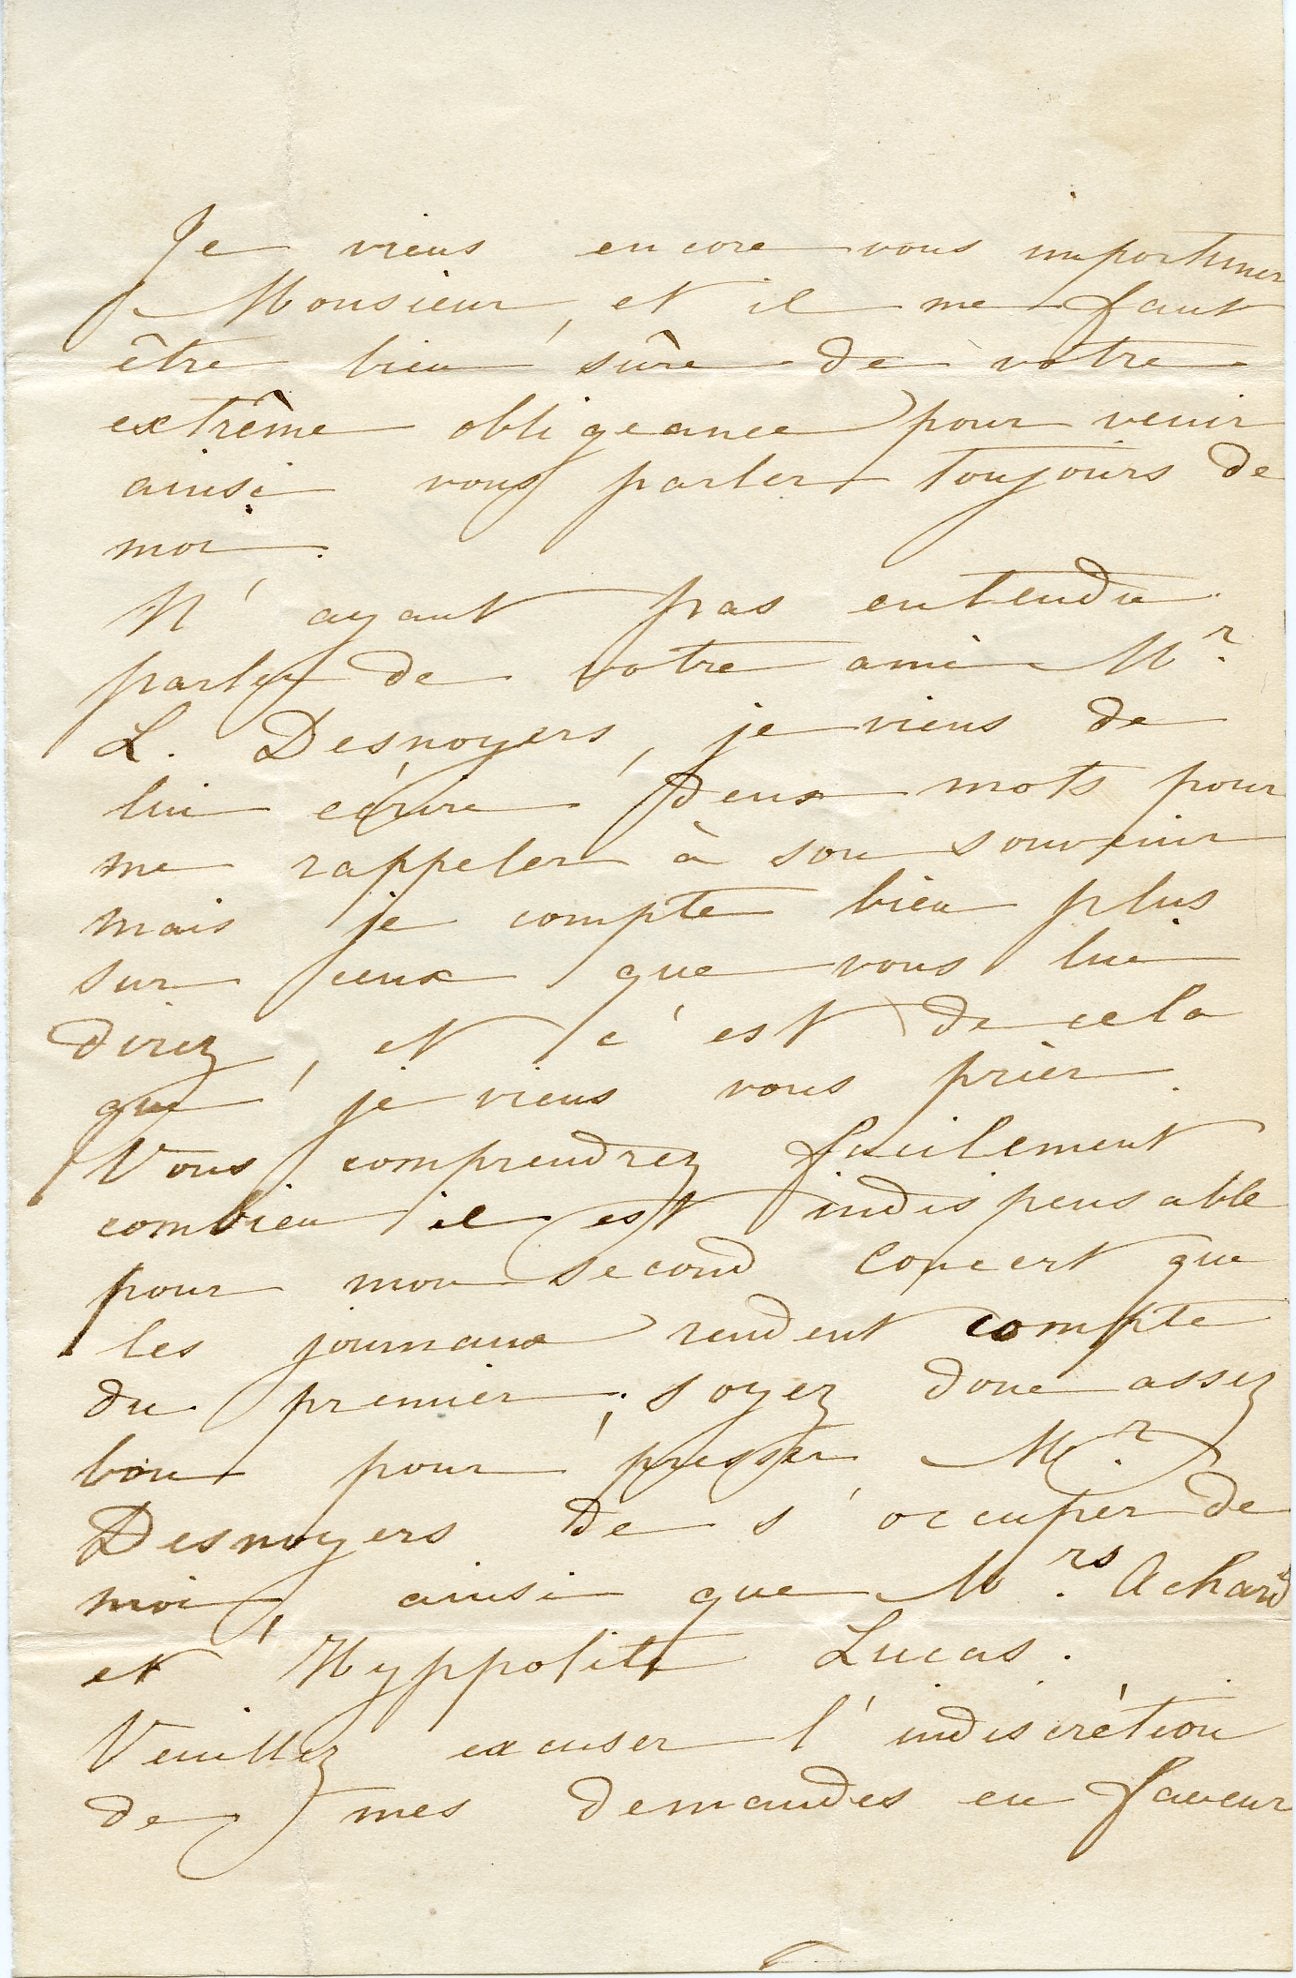 Je viens encore vous importuner
Monsieur, et il me faut
être bien sûre de votre
extrême obligeance pour venir
ainsi vous parler toujours de
moi.
N'ayant pas entendu
parler de votre ami Mr.
L. Desnoyers, je viens de
lui écrire deux mots pour
me rappeler à son souvenir
mais je compte bien plus
sur ceux que vous lui
direz, et c'est de cela
que je viens vous prier.
Vous comprendrez facilement
combien il est indispensable
pour mon second concert que
les journaux rendent compte
du premier; soyez donc assez
bon pour presser Mr.
Desnoyers de s'occuper de
moi, ainsi que Mrs. Achard
et Hyppolite Lucas.
Veuillez excuser l'indiscrétion
de mes demandes en faveur